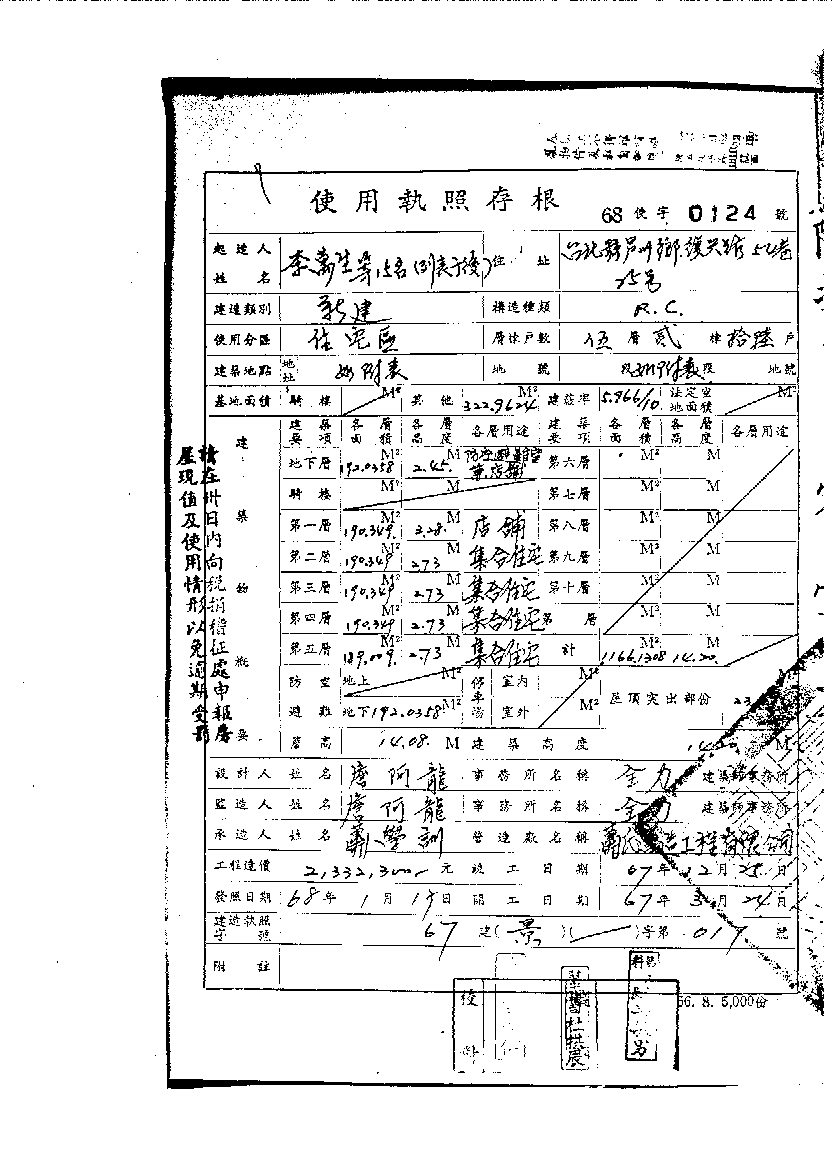 使用執照存根
68使字 0124 號
起造人姓名 李 生等15名(列表于後) 住址 台北縣 鄉復興路52巷25号
建造類別 新建 構造種類 R.C.
使用分區 住宅區 層棟戶數 伍層貳棟拾陸戶
建築地點 地址 如附表 地號 段如附表段 地號
基地面積 騎樓 M² 其他 322.9624 M² 建蔽率 5.966/10 法定空地面積 M²
建築物概要 建築要項 各層面積 各層高度 各層用途 建築要項 各層面積 各層高度 各層用途
地下層 192.0358 M² 2.45. M 防空避難室兼店舖 第六層 M² M
騎樓 M² M 第七層 M² M
第一層 190.349 M² 3.28. M 店舖 第八層 M² M
第二層 190.349 M² 2.73 M 集合住宅 第九層 M² M
第三層 190.349 M² 2.73 M 集合住宅 第十層 M² M
第四層 190.349 M² 2.73 M 集合住宅 第 層 M² M
第五層 189.009. M² 2.73 M 集合住宅 計 1166.1308 M² 14.20. M
防空避難 地上 M² 停車場 室內 M² 屋頂突出部份 23
地下192.0358M² 室外
簷高 14.08. M 建築高度 14.20 M
設計人 姓名 詹阿龍 事務所名稱 全力 建築師事務所
監造人 姓名 詹阿龍 事務所名稱 全力 建築師事務所
承造人 姓名 蕭 訓 營造廠名稱 工程有限公司
工程造價 2,332,300 元 竣工日期 67年12月25日
發照日期 68年1月15日 開工日期 67年3月24日
建造執照字號 67 建(景)( )字第 019 號
附註
請在卅日內向稅捐稽征處申報房
屋現值及使用情形以免逾期受罰
66. 8. 5,000份